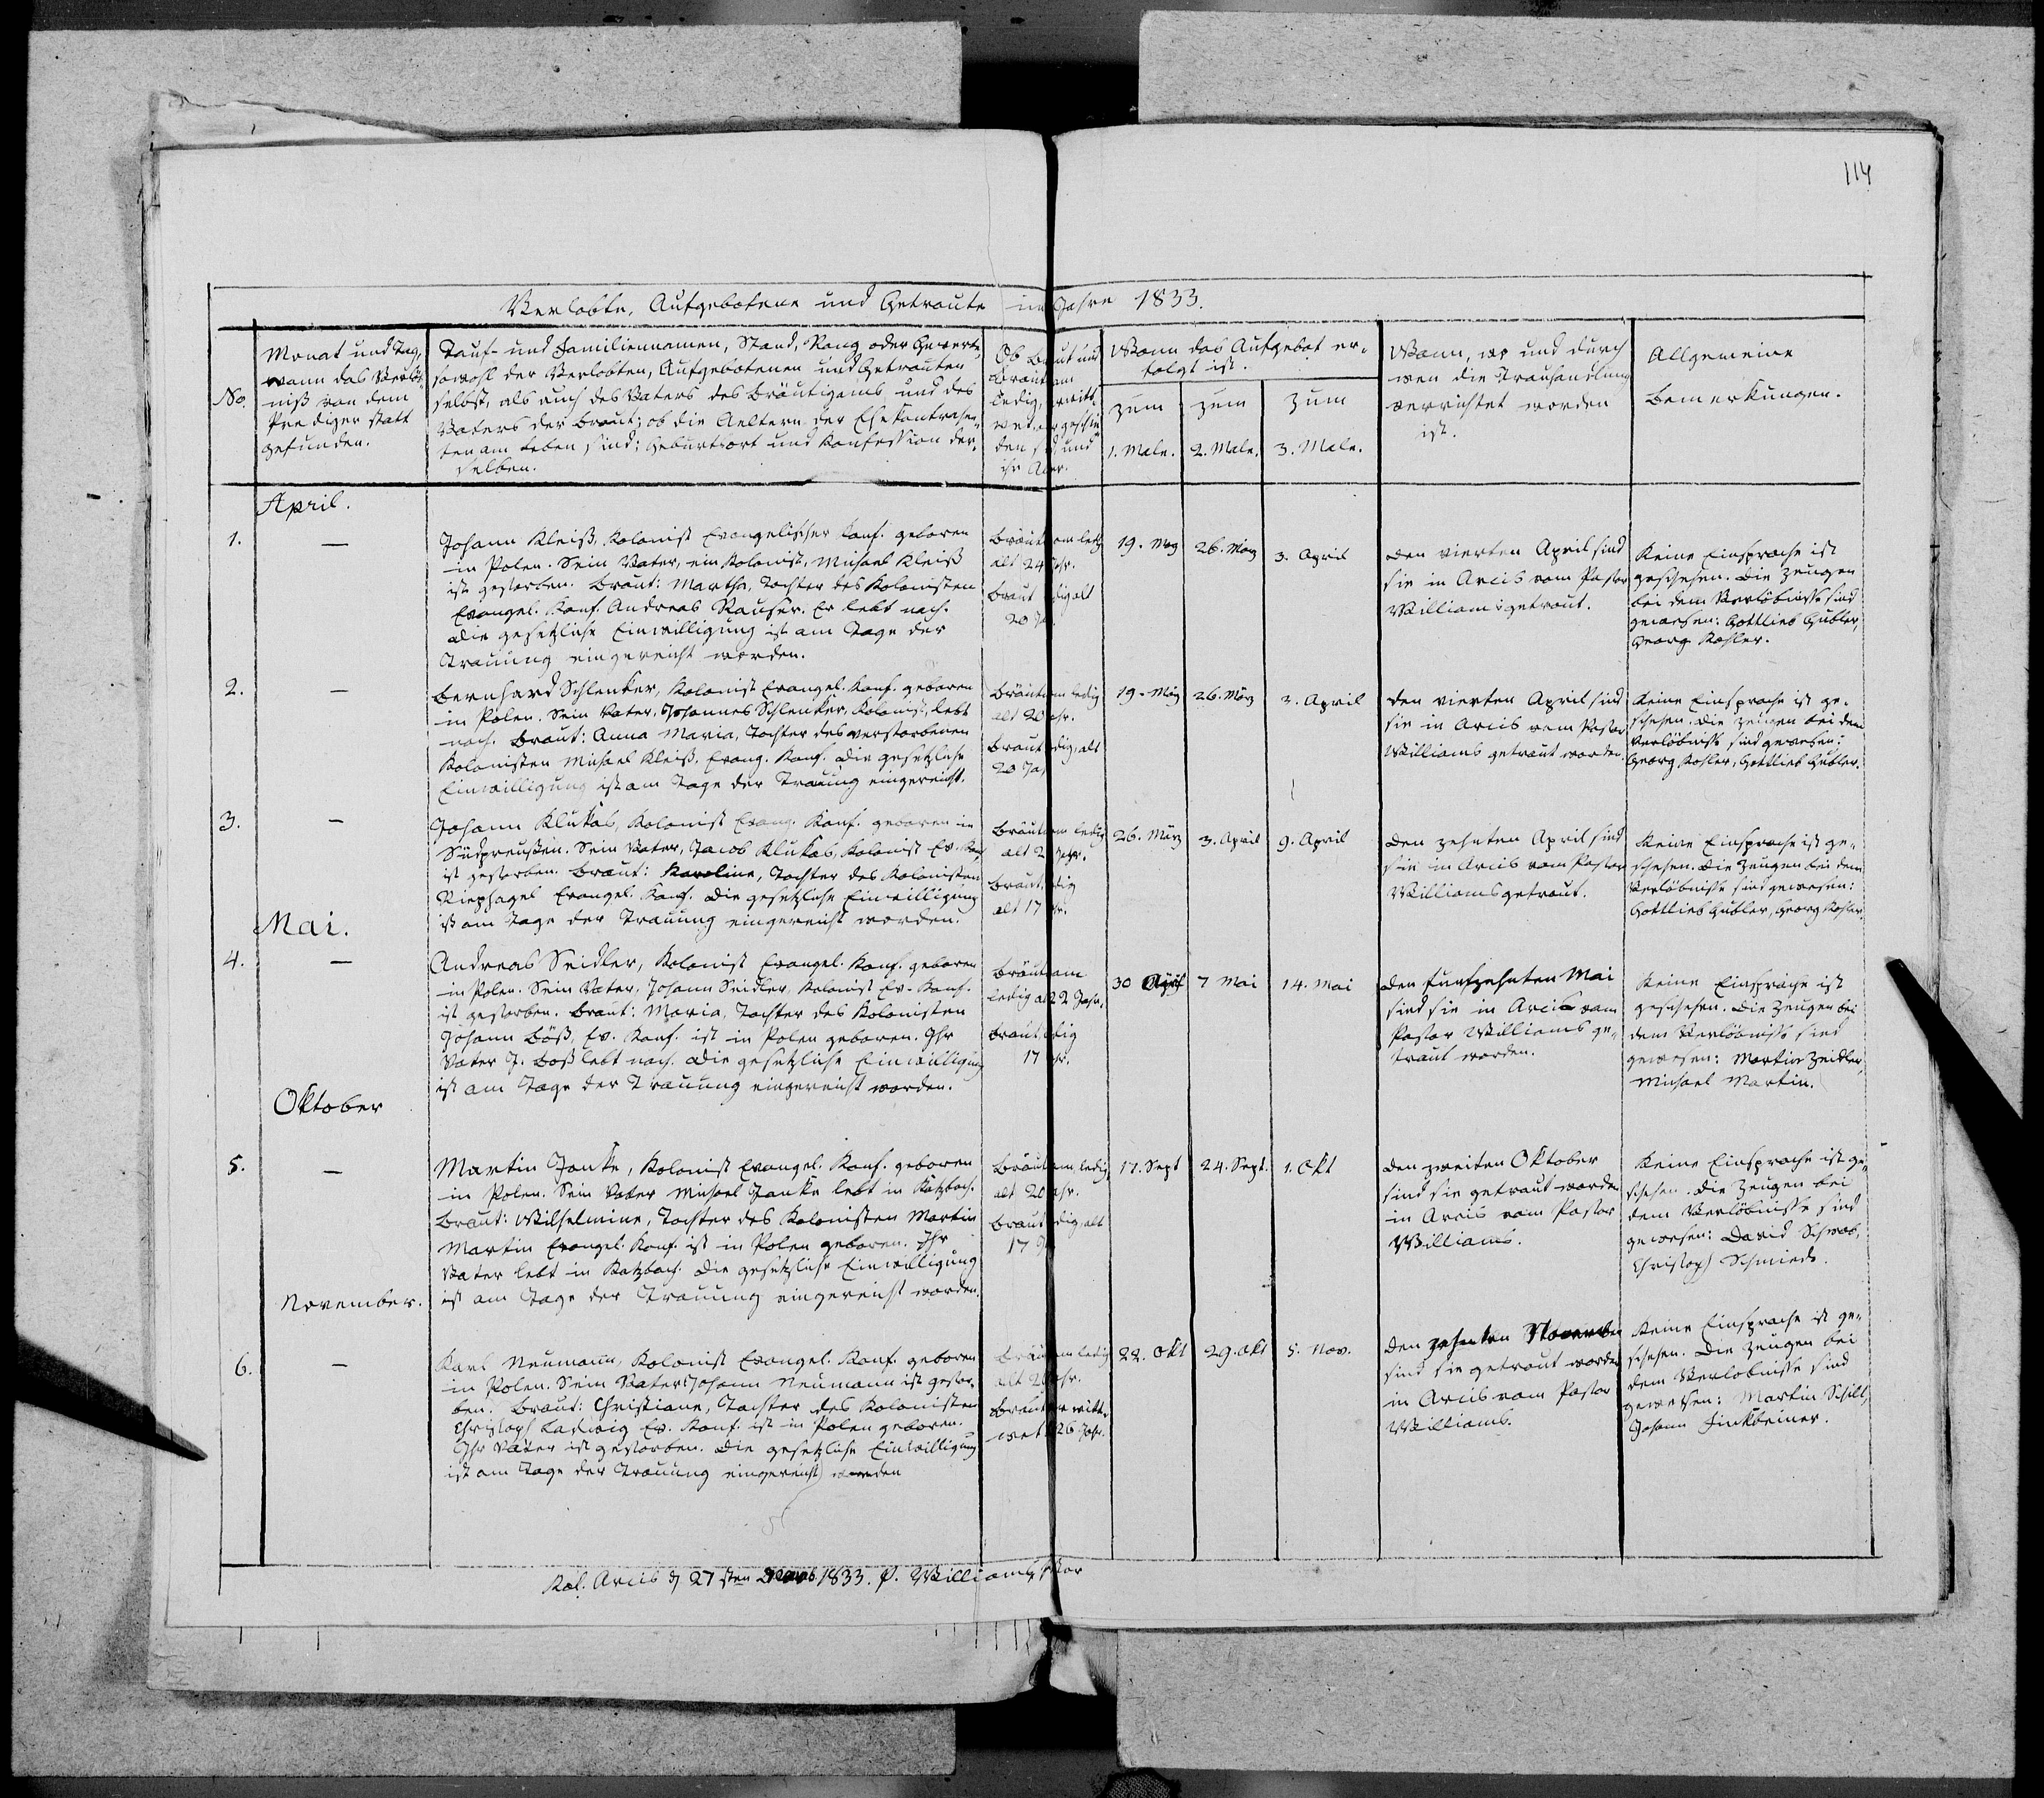 114
Verlobte, Aufgebotene und Getraute im Jahre 1833.
No.
Monat und Tag,
wann das Verlöb,
niß von dem
Prediger statt
gefunden.
Tauf- und Familiennamen, Stand, Rang oder Gewerbe,
sowohl der Verlobten, Aufgebotenen und Getrauten
selbst, als auch des Vaters des Bräutigams und des
Vaters der Braut; ob die Aeltern der Ehekontrahen,
ten am Leben sind; Geburtsort und Konfession der,
selben.
Ob Braut und
Bräut am
ledig, rwitt,
wet, er geschie
den sd und
ihr Aer.
Wann das Aufgebot er-
folgt ist.
zum
1. Male.
zum
2. Male.
zum
3. Male.
Wann, wo und durch
wen die Trauhandlung
verrichtet worden
ist.
Allgemeine
Bemerkungen.
April.
1.
—
Johann Kleiß, Kolonist Evangelischer Konf. geboren
in Polen. Sein Vater, ein Kolonist, Michael Kleiß
ist gestorben. Braut: Martha, Tochter des Kolonisten
Evangel. Konf. Andreas Rauser. Er lebt noch.
Die gesetzliche Einwilligung ist am Tage der
Trauung eingereicht worden.
Bräut am ledig
alt 24 Jhr.
Braut digalt
20 J
19. März
26. März
3. April
Den vierten April sind
sie in Arcis vom Pastor
Williams getraut.
Keine Einsprache ist
geschehen. Die Zeugen
bei dem Verlöbnisse sind
gewesen: Gottlieb Hubler,
Georg Kohler.
2.
—
Bernhard Schlenker, Kolonist Evangel. Konf. geboren
in Polen. Sein Vater, Johannes Schlenker, Kolonist, lebt
noch. Braut: Anna Maria, Tochter des verstorbenen
Kolonisten Michael Kleiß. Evang. Konf. Die gesetzliche
Einwilligung ist am Tage der Trauung eingereicht.
Bräut am ledig
alt 20 ahr.
Braut dig, alt
20 Ja
19. März
26. März
3. April
Den vierten April sind
sie in Arcis vom Pastor
Williams getraut worden.
Keine Einsprache ist ge,
schehen. Die Zeugen bei dem
Verlöbnisse sind gewesen:
Georg Kohler, Gottlieb Hubler.
3.
—
Johann Klukas, Kolonist Evang. Konf. geboren in
Südpreußen. Sein Vater, Jacob Klukas, Kolonist Ev. Konf.
ist gestorben. Braut: Karoline, Tochter des Kolonisten
Evangel. Konf. Die gesetzliche Einwilligung
ist am Tage der Trauung eingereicht worden.
Bräut am ledig
alt 2 Jahr.
Braut, dig
alt 17 hr.
26. März
3. April
9. April
Den zehnten April sind
sie in Arcis vom Pastor
Williams getraut.
Keine Einsprache ist ge,
schehen. Die Zeugen bei dem
Verlöbnisse sind gewesen:
Gottlieb Hubler, Georg Kohler.
Mai.
4.
—
Andreas Seidler, Kolonist Evangel. Konf. geboren
in Polen. Sein Vater, Johann Seidler, Kolonist Ev. Konf.
ist gestorben. Braut: Maria, Tochter des Kolonisten
Johann Böß, Ev. Konf. ist in Polen geboren. Ihr
Vater J. Boß lebt noch. Die gesetzliche Einwilligung
ist am Tage der Trauung eingereicht worden.
Bräut am
ledig alt 22 Jahr.
Braut edig
17 hr.
30 April
7 Mai
14. Mai
Den funfzehnten Mai
sind sie in Arcis vom
Pastor Williams ge-
traut worden.
Keine Einsprache ist
geschehen. Die Zeugen bei
dem Verlöbnisse sind
gewesen: Martin Zeidler,
Michael Martin.
Oktober
5.
—
Martin Janke, Kolonist Evangel. Konf. geboren
in Polen. Sein Vater Michael Janke lebt in Katzbach.
Braut: Wilhelmine, Tochter des Kolonisten Martin
Martin Evangel. Konf. ist in Polen geboren. Ihr
Vater lebt in Katzbach. Die gesetzliche Einwilligung
ist am Tage der Trauung eingereicht worden.
Bräut am, ledig,
alt 20 ahr.
Braut dig, alt
17 J
17. Sept
24. Sept.
1. Okt
Den zweiten Oktober
sind sie getraut worden
in Arcis vom Pastor
Williams.
Keine Einsprache ist ge,
schehen. Die Zeugen bei
dem Verlöbnisse sind
gewesen: David Schwab,
Christoph Schmiede.
November.
6.
—
Karl Neumann, Kolonist Evangel. Konf. geboren
in Polen. Sein Vater Johann Neumann ist gestor,
ben. Braut: Christiane, Tochter des Kolonisten
Christoph Ladwig Ev. Konf. ist in Polen geboren.
Ihr Vater ist gestorben. Die gesetzliche Einwilligung
ist am Tage der Trauung eingereicht worden
Bräut am ledig
alt 2 Jahr.
Braut er witt,
wet 26 Jahr.
22. Okt
29. Okt
5. Nov.
Den zehnten November
sind sie getraut worden
in Arcis vom Pastor
Williams.
Keine Einsprache ist ge,
schehen. Die Zeugen bei
dem Verlöbnisse sind
gewesen: Martin Schill,
Johann Finkbeiner.
Kol. Arcis d 27sten 1833. P. Williams, Pastor